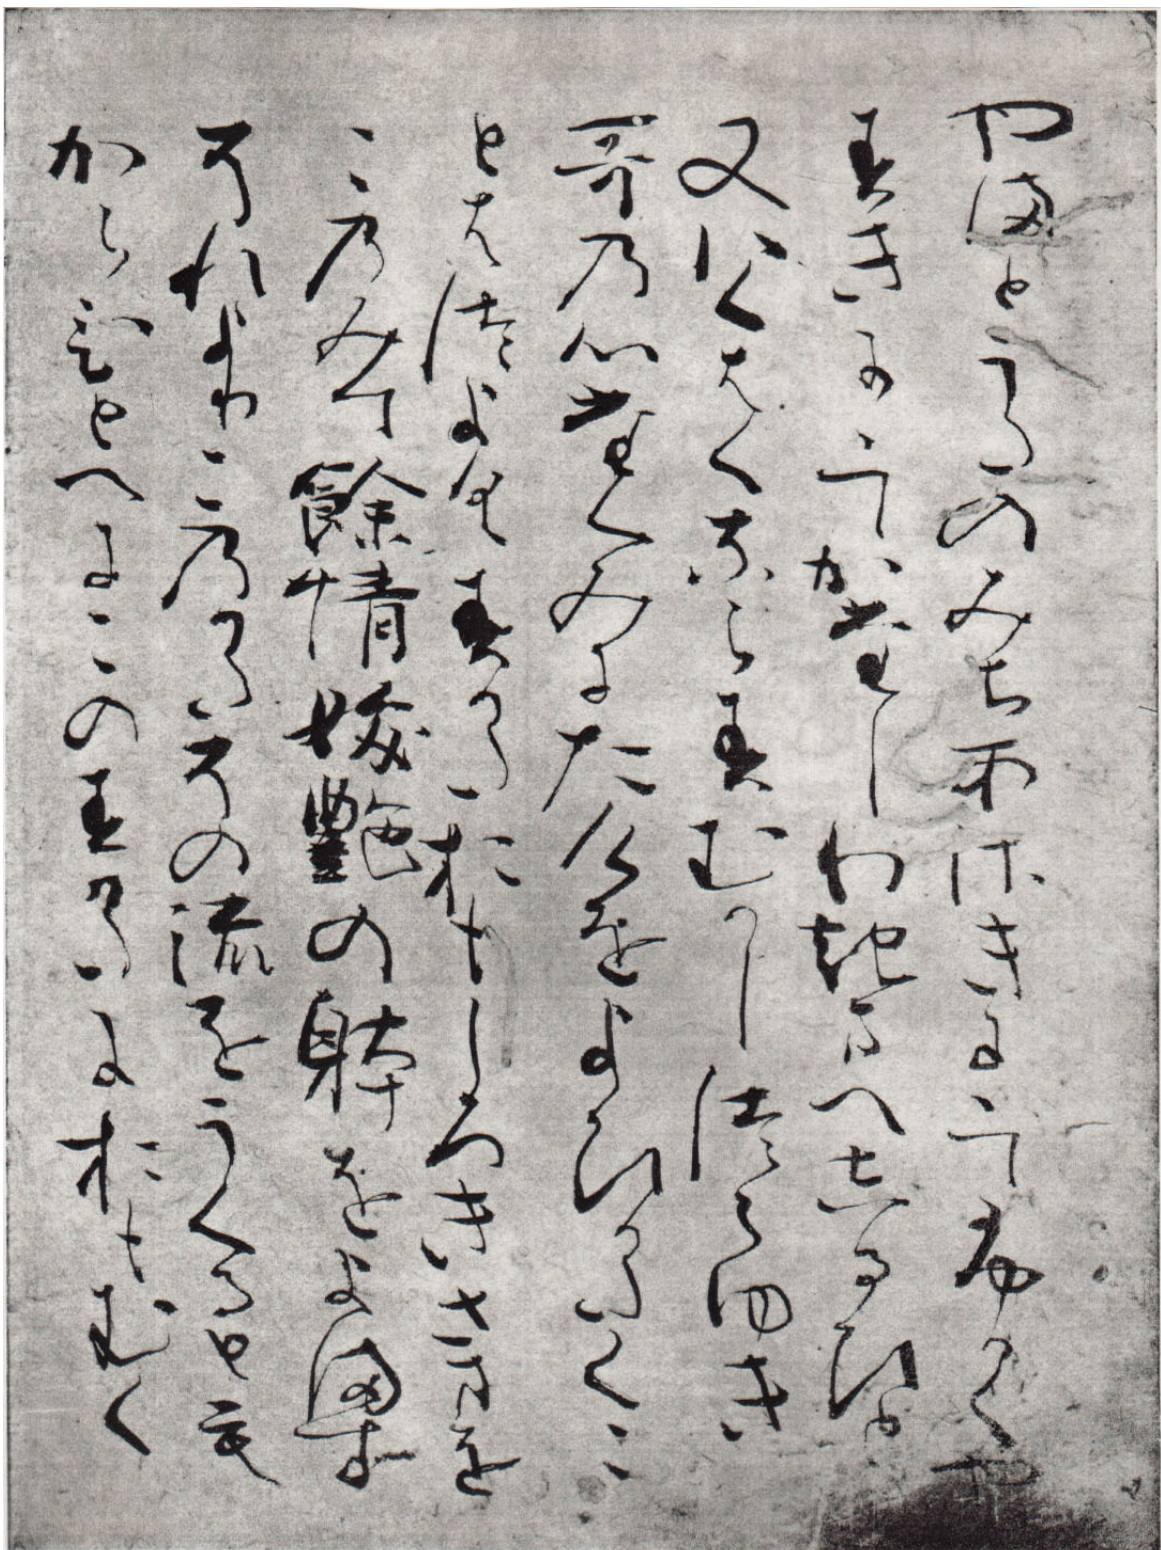 やまとうたのみちあさきにゝてふかくや
すきにゝてかたしわきまへしるひと
又いくはくならすむかしつらゆき
哥の心たくみにたけをよひかたくこ
とはつよくすかたおもしろきさまを
このみて餘情妖艶の躰をよます
それよりこのかたその流をうくるとも
からひとへにこのすかたにおもむく